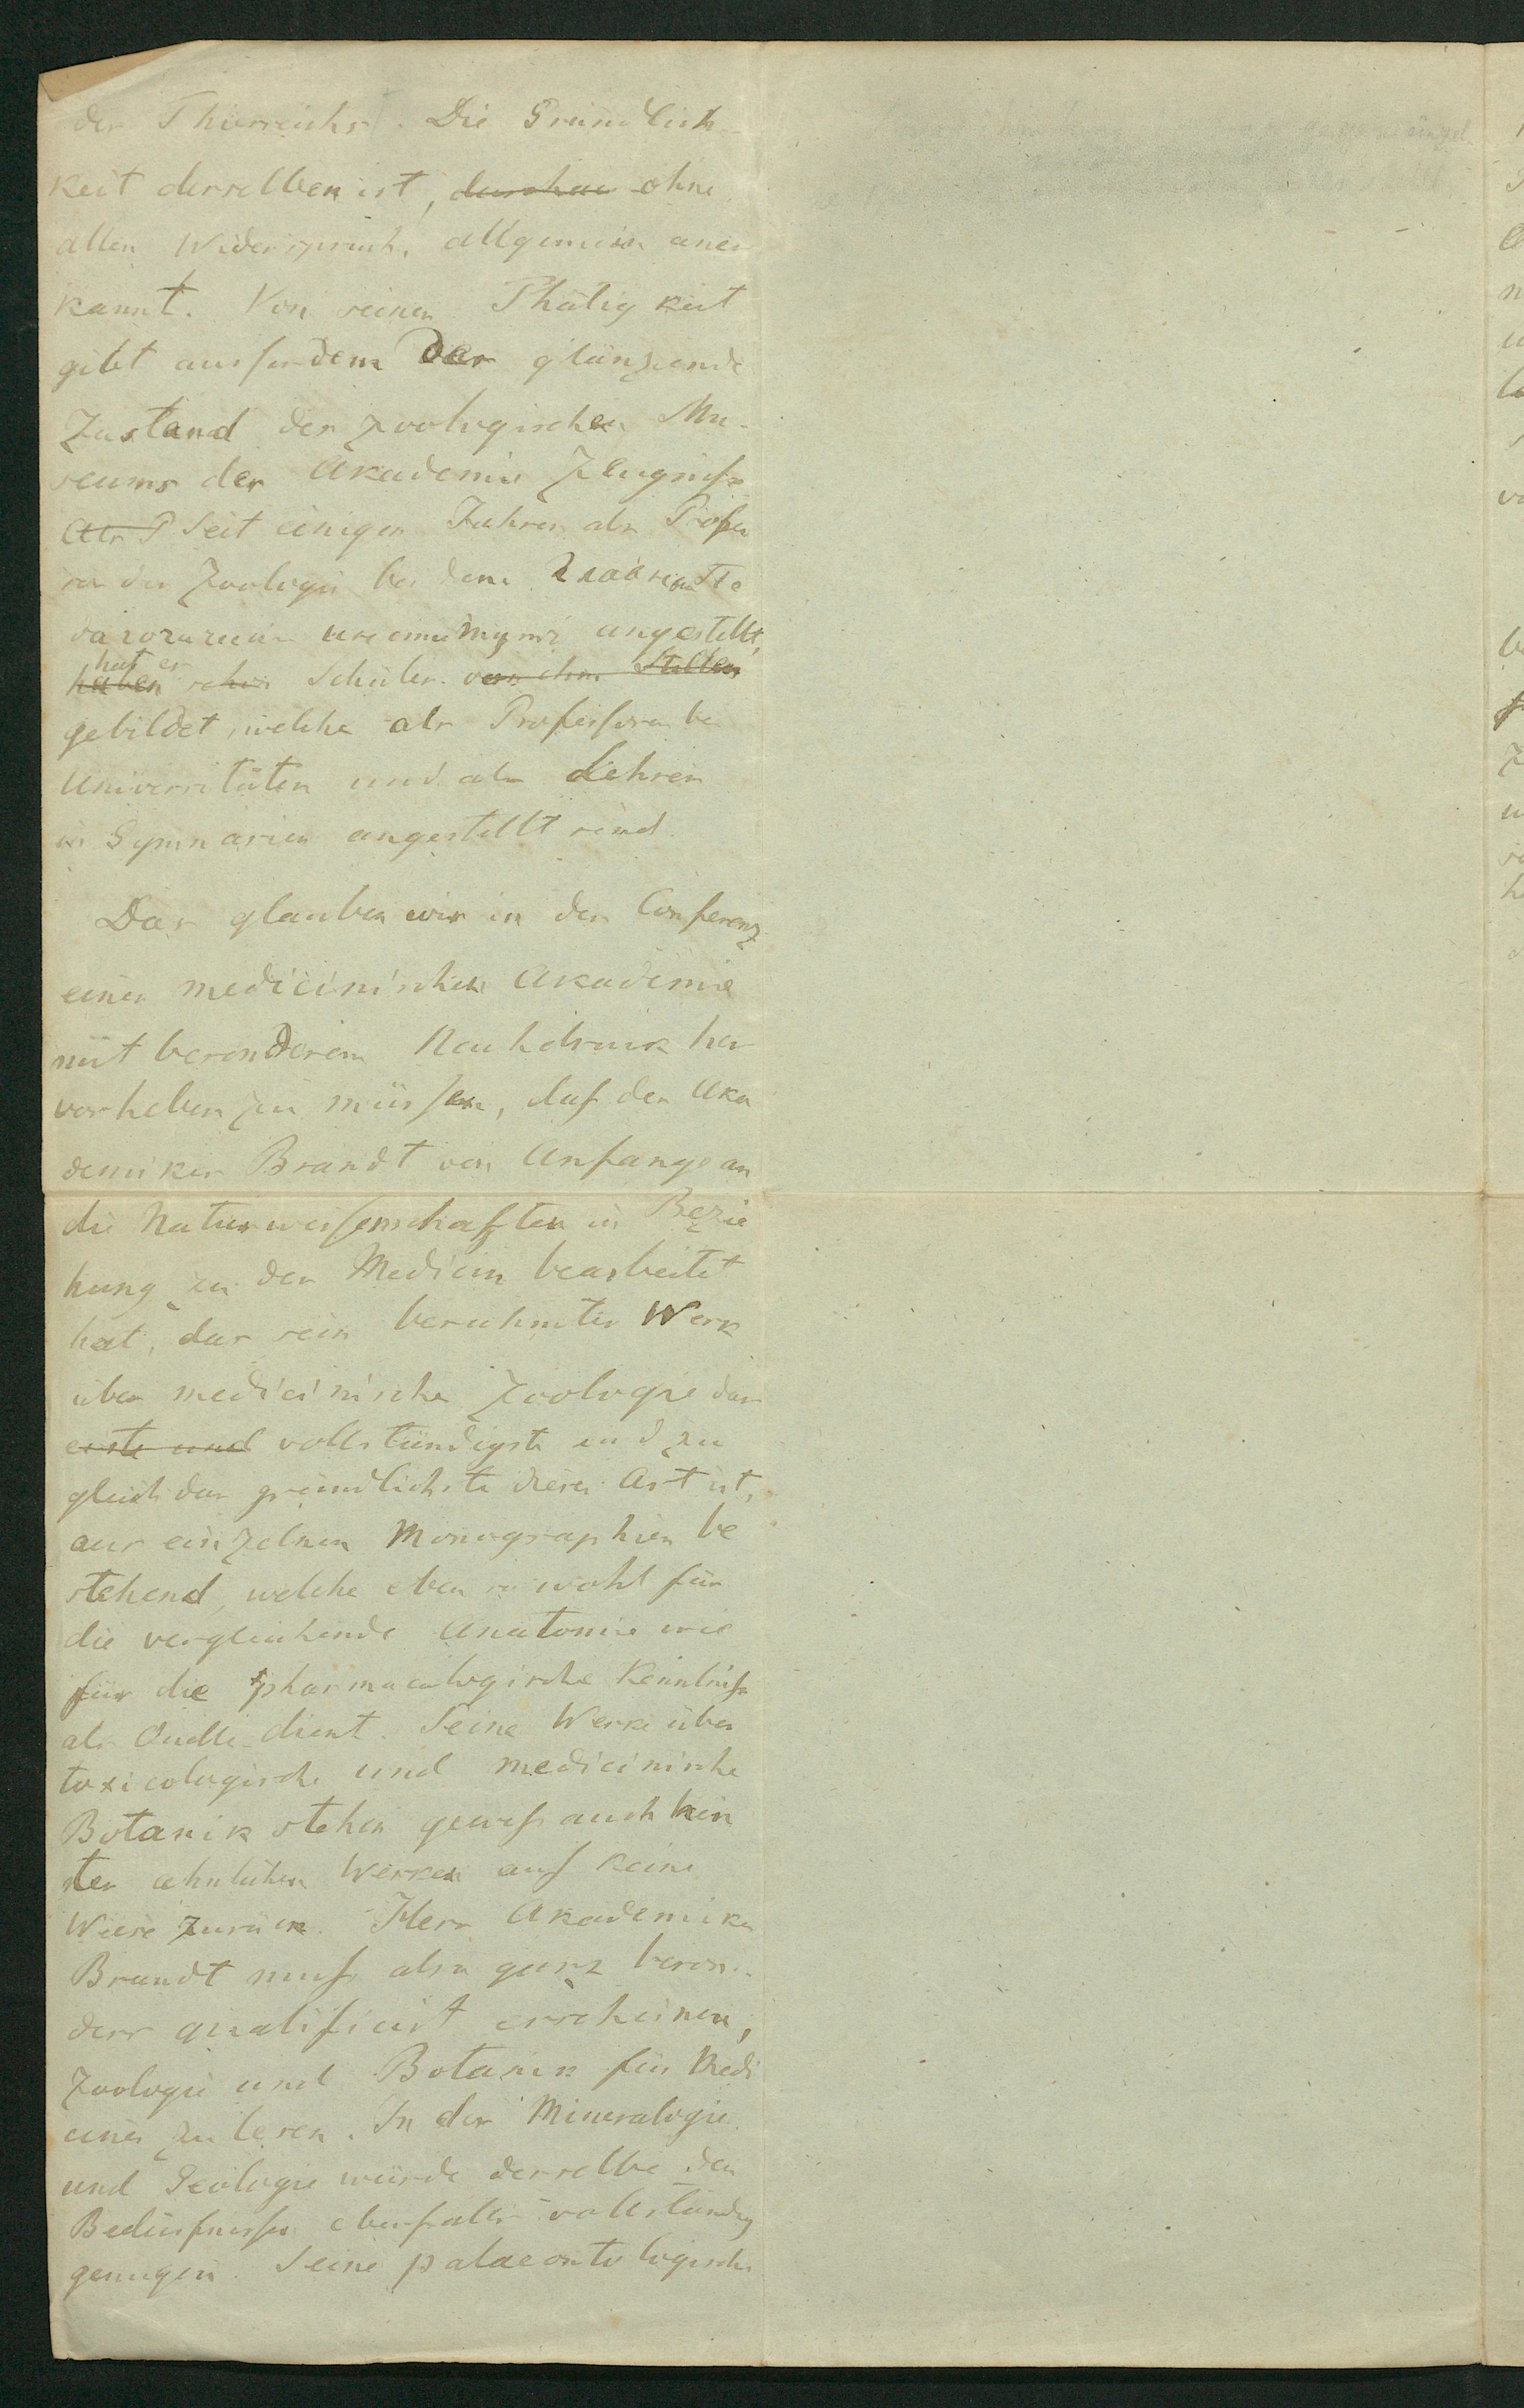 des Thierreichs. Die Gründlich-
keit derselben ist, durchau ohne
allen Widerspruch, allgemein aner
kannt. Von seiner Thätigkeit
gibt ausserdem der glänzende
Zustand des zoologischen Mu-
seums der Akademie Zeugniss
Als P Seit einigen Jahren als Profes
sor der Zoologie bei dem Главномъ Пе
дагогическ институтѣ angestellt,
hat er
haben schon Schüler von ihm Stellen
gebildet, welche als Professoren bei
Universitäten und als Lehrer
in Gymnasien angestellt sind.
Das glauben wir in der Conferenz
einer medicinischen Akademie
mit besonderem Nachdruck her
vorheben zu müssen, dass der Aka
demiker Brandt von Anfange an
die Naturwissenschaften in Bezie
hung zu der Medicin bearbeitet
hat, dass sein berühmtes Werk
über medicinische Zoologie das
erste und vollständigste und zu
gleich das gründlichste dieser Art ist,
aus einzelnen Monographien be
stehend, welche eben so wohl für
die vergleichende Anatomie wie
für die pharmacologische Kenntniss
als Quelle dient. Seine Werke über
toxicologische und medicinische
Botanik stehen gewiss auch hin
ter aehnlichen Werken auf keine
Weise zurück. Herr Akademiker
Brandt muss also ganz beson-
ders qualificirt erscheinen,
Zoologie und Botanik für Medi
ciner zu lesen. In der Mineralogie
und Geologie würde derselbe den
Bedürfnissen ebenfalls vollständig
genügen. Seine palaeontologische